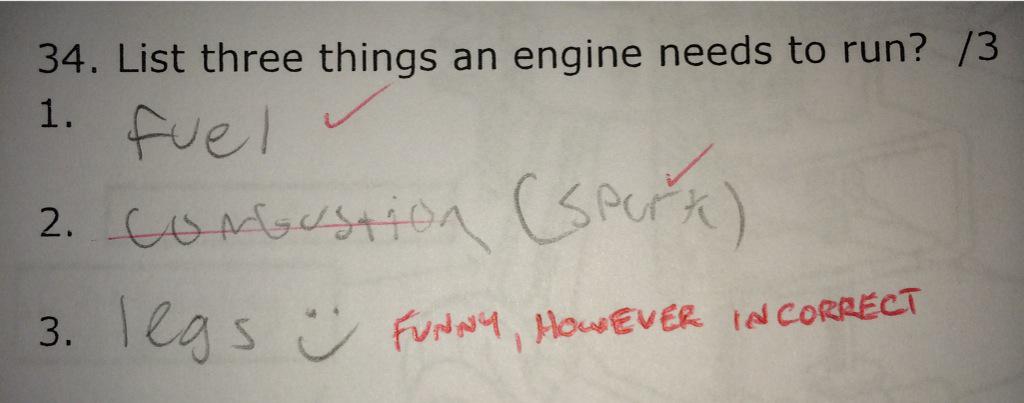 34. List three things an engine needs to run? /3
1. fuel
2. combustion (spark)
3. legs FUNNY, HOWEVER INCORRECT